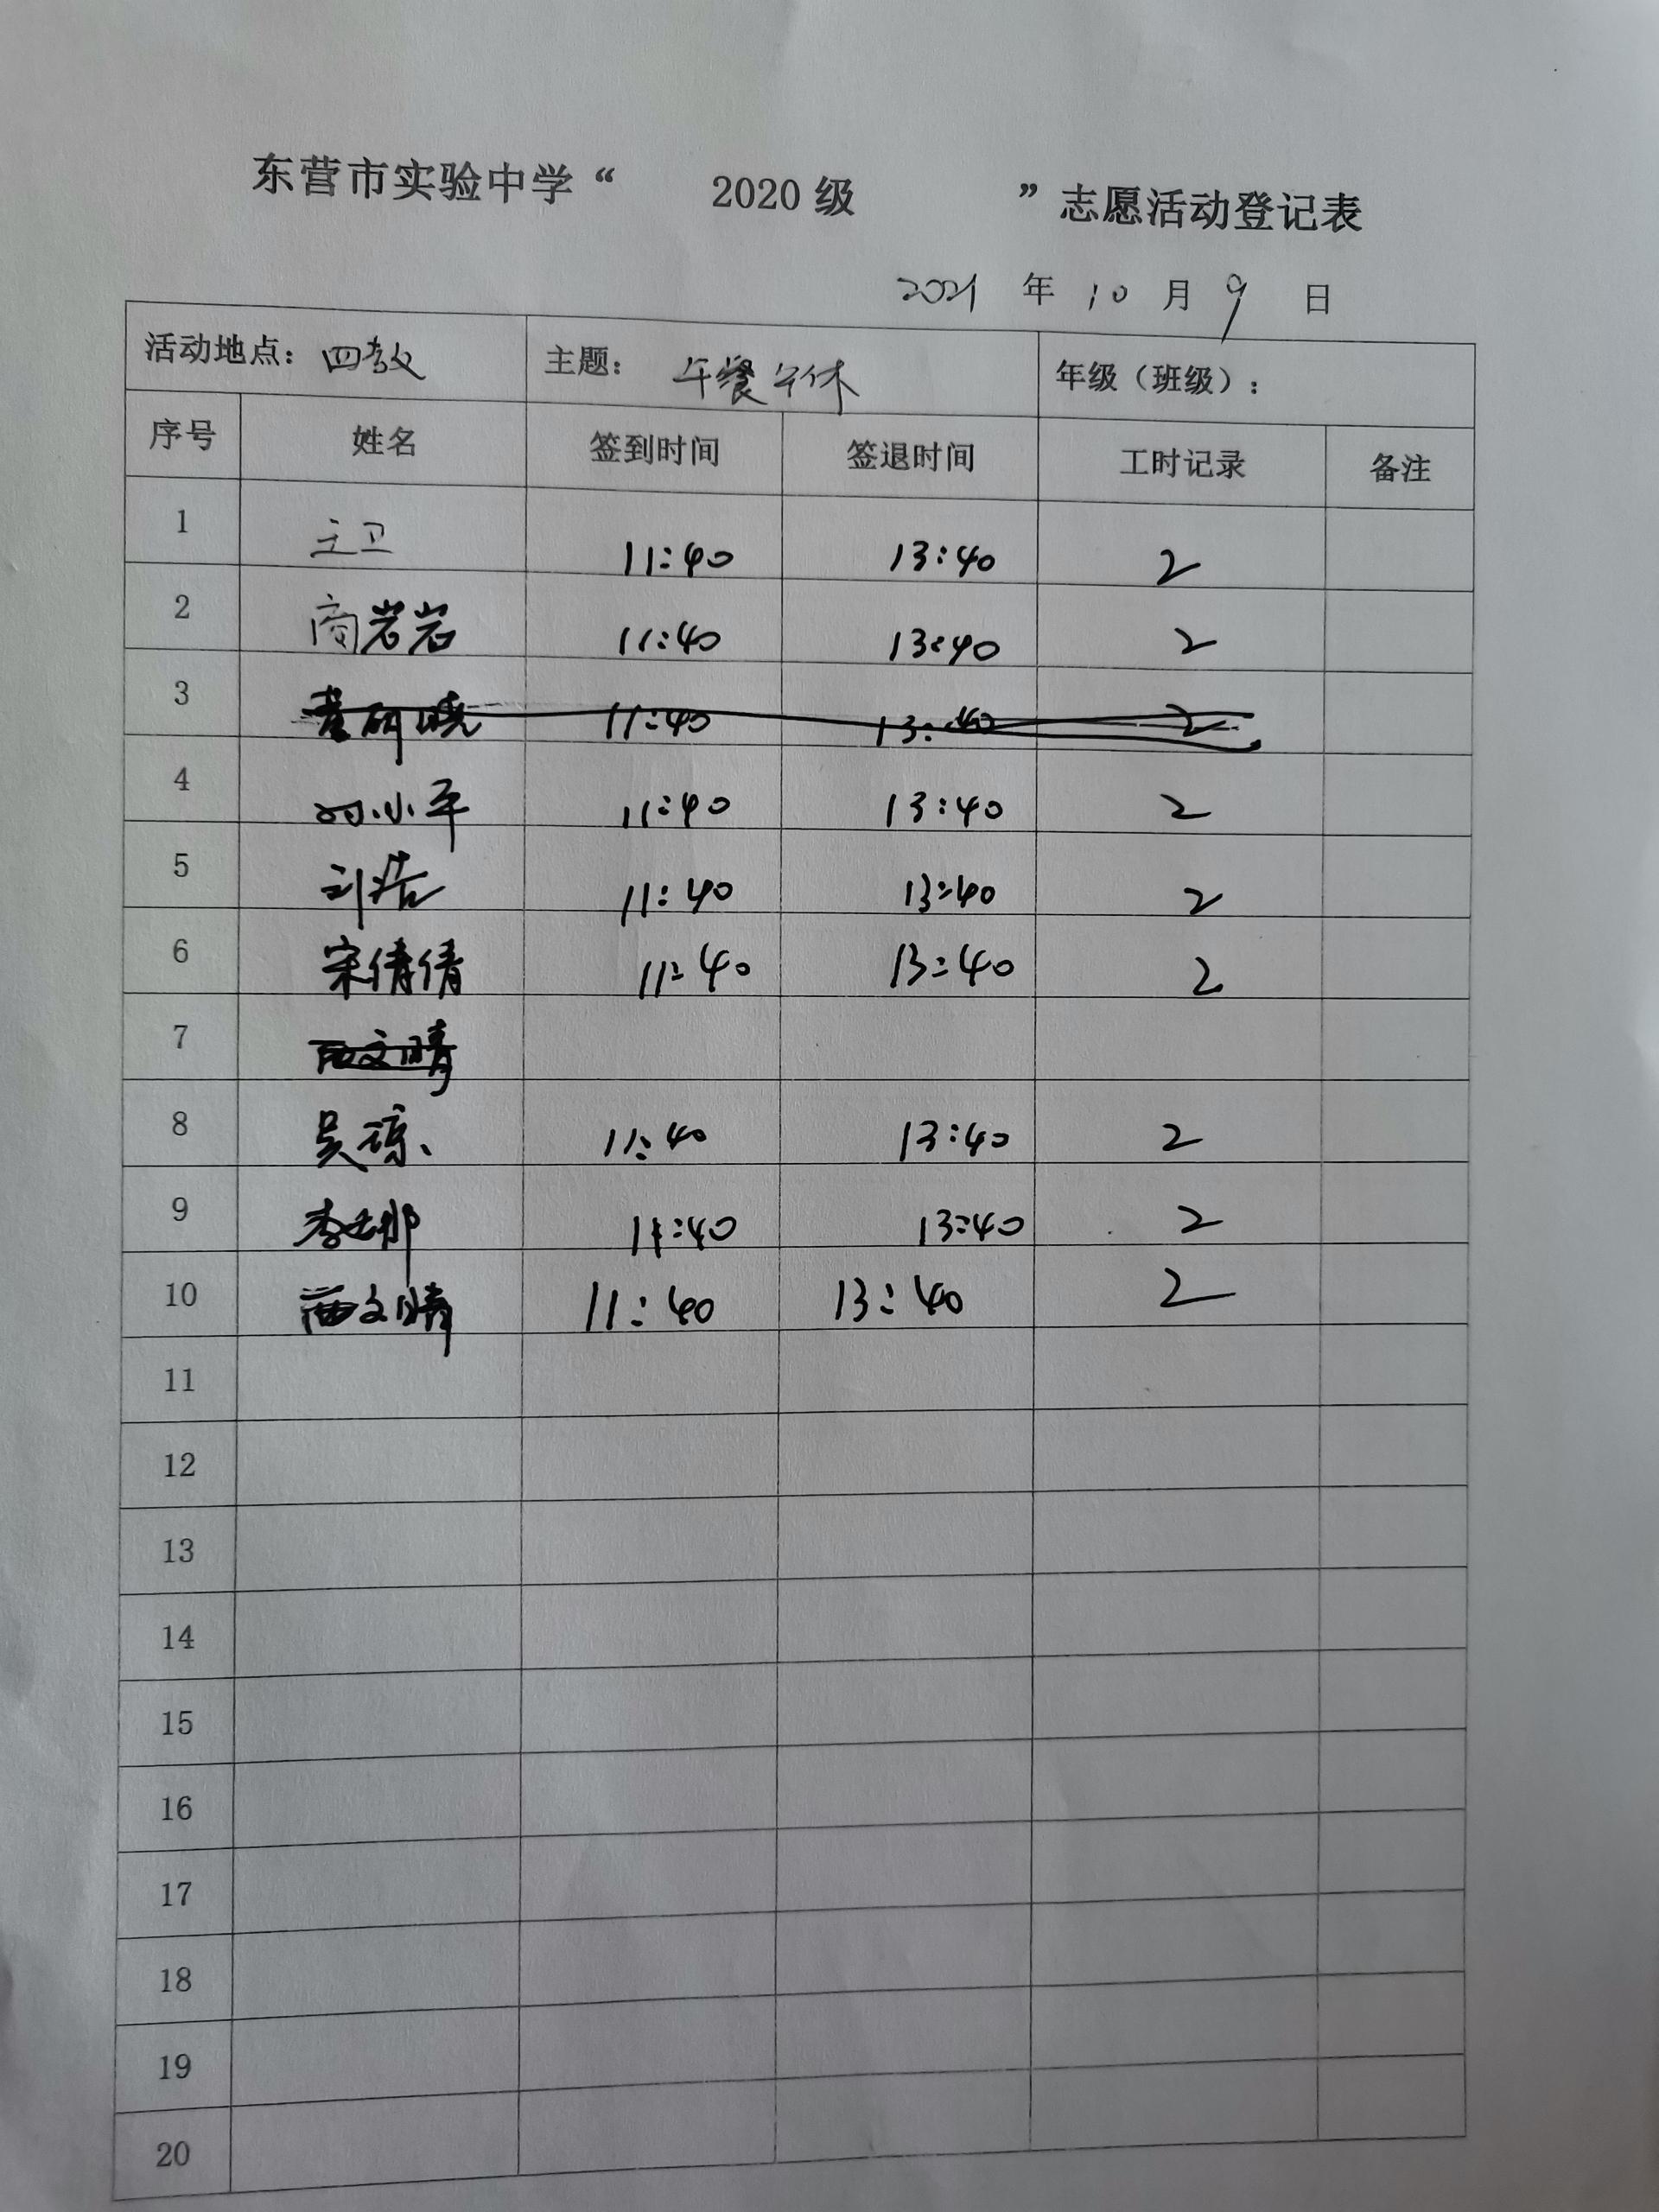 东营市实验中学“ 2020 级 ”志愿活动登记表
2021 年 10 月 9 日
活动地点：四教 主题： 午餐午休 年级（班级）：
序号 姓名 签到时间 签退时间 工时记录 备注
1 王卫 11:40 13:40 2
2 商岩岩 11:40 13:40 2
3 11:40 13:40 2
4 小平 11:40 13:40 2
5 刘浩 11:40 13:40 2
6 宋倩倩 11:40 13:40 2
7 文晴
8 吴琼 11:40 13:40 2
9 李 娜 11:40 13:40 2
10 文晴 11:40 13:40 2
11
12
13
14
15
16
17
18
19
20